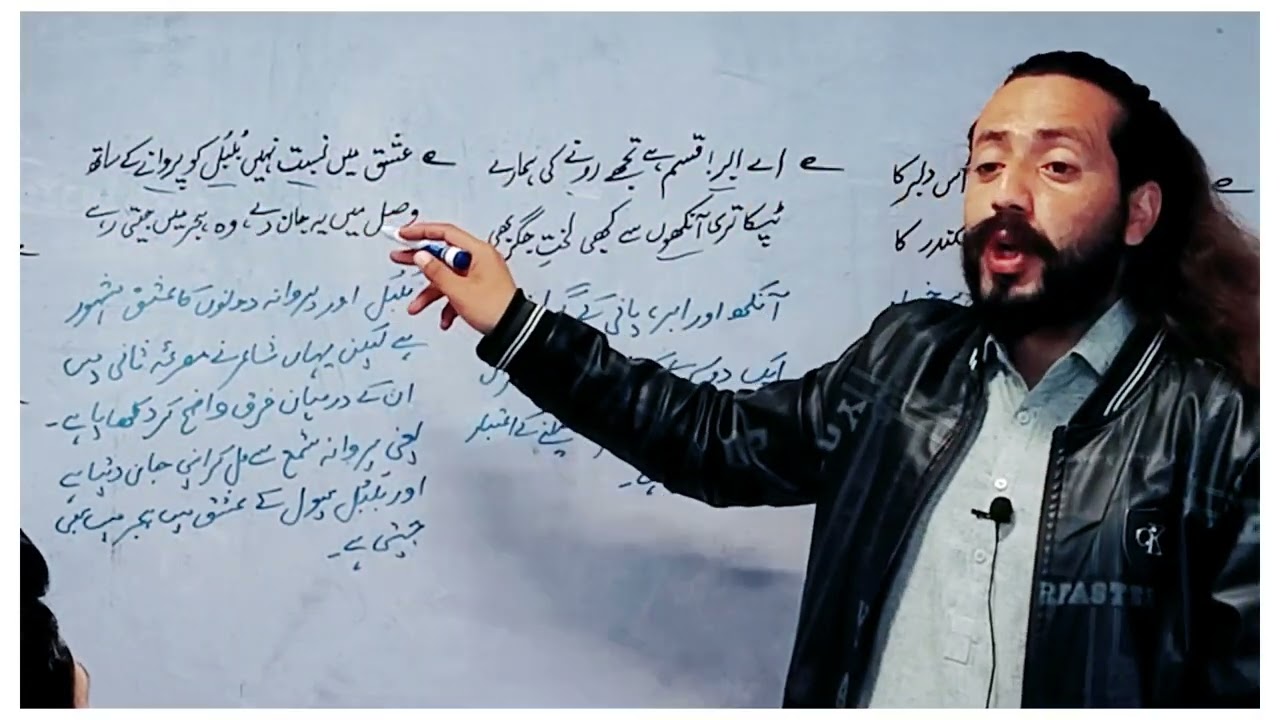 اس دلبر کا
کندر کا
اے ابر! قسم ہے تجھے رونے کی ہمارے
ٹپکا تری آنکھوں سے کبھی لختِ جگر بھی
آنکھ اور ابر، پانی کے
ایک دوسرے
کے اعتبار
عشق میں نسبت نہیں بُلبُل کو پروانے کے ساتھ
وصل میں یہ جان دے، وہ ہجر میں جیتی رہے
بُلبُل اور پروانہ دونوں کا عشق مشہور
ہے لیکن یہاں شاعر نے مصرعۂ ثانی میں
ان کے درمیان فرق واضح کر دکھایا ہے۔
یعنی پروانہ شمع سے مل کر اپنی جان دیتا ہے
اور بُلبُل پھول کے عشق میں ہجر میں بھی
جیتی ہے۔
CK
RFASTE